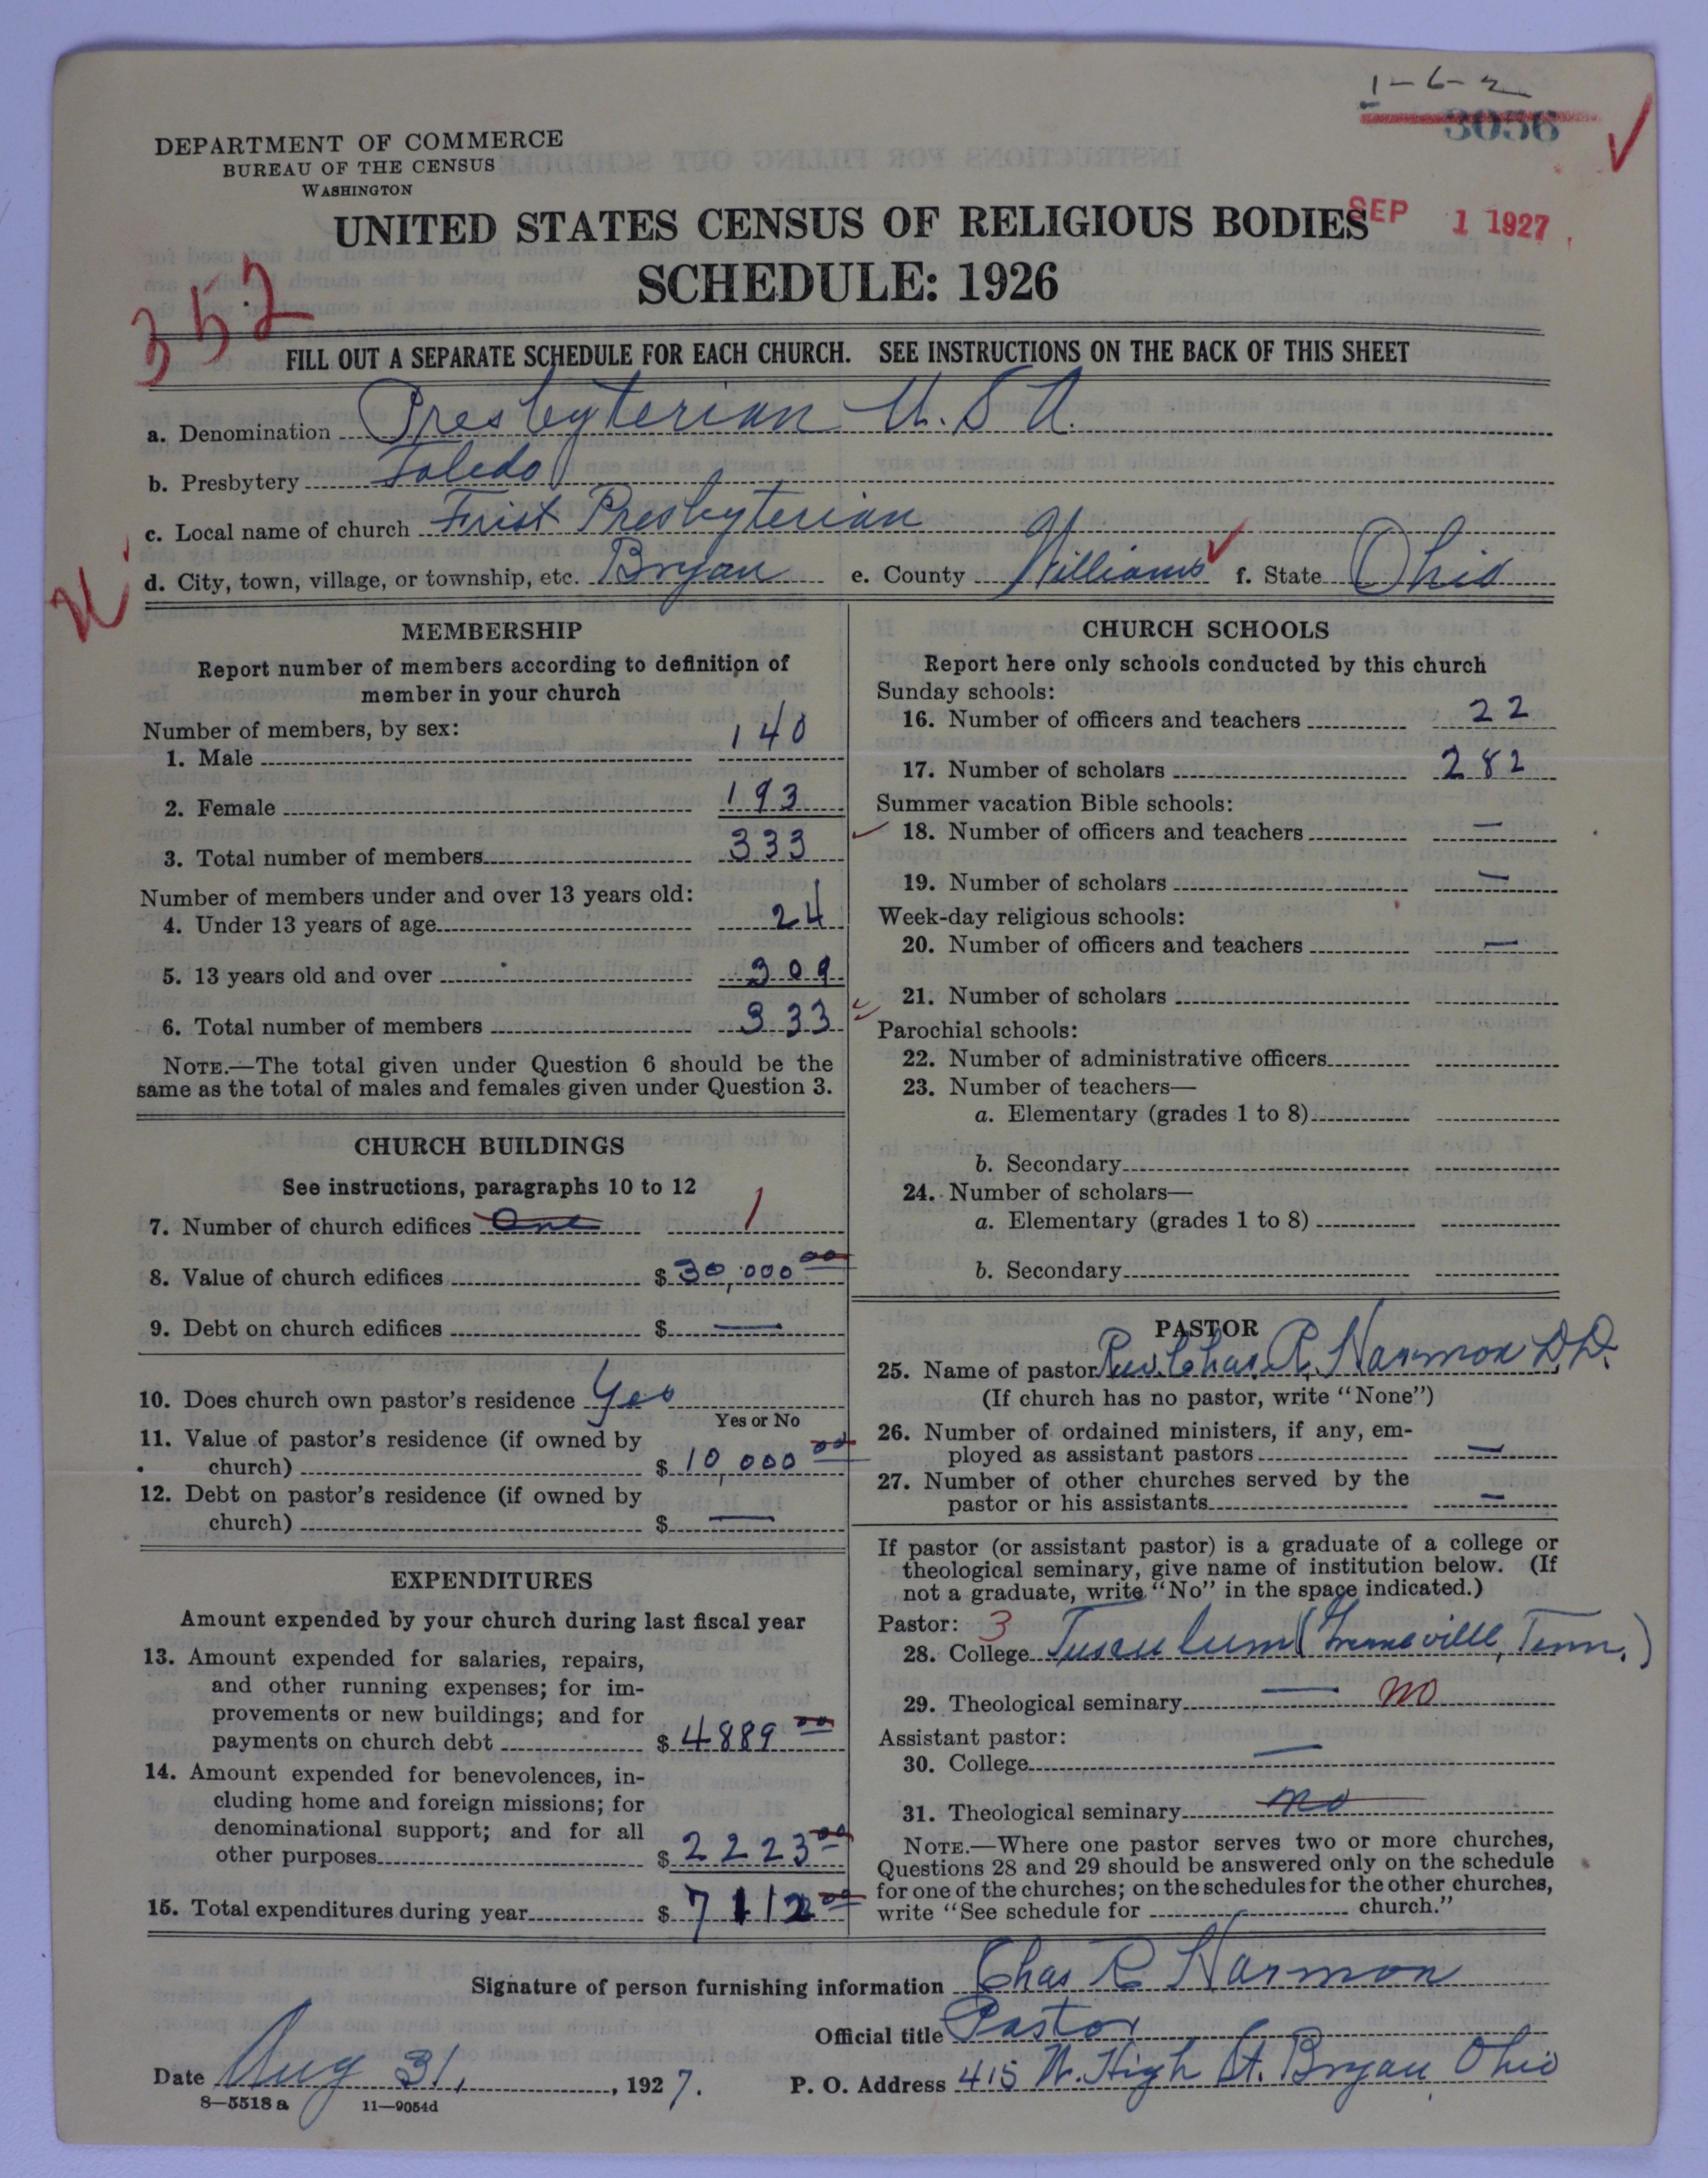 1-6-2
3056
DEPARTMENT OF COMMERCE
BUREAU OF THE CENSUS
WASHINGTON
SEP 1 1927
UNITED STATES CENSUS OF RELIGIOUS BODIES
SCHEDULE: 1926
352
FILL OUT A SEPARATE SCHEDULE FOR EACH CHURCH. SEE INSTRUCTIONS ON THE BACK OF THIS SHEET
a. Denomination Presbyterian U.S.A.
b. Presbytery Toledo
c. Local name of church Frist Presbyterian
d. City, town, village, or township, etc. Bryan e. County Williams f. State Ohio
MEMBERSHIP
Report number of members according to definition of
member in your church
Number of members, by sex:
1. Male 140
2. Female 193
3. Total number of members 333
Number of members under and over 13 years old:
4. Under 13 years of age 24
5. 13 years old and over 309
6. Total number of members 333
NOTE.—The total given under Question 6 should be the
same as the total of males and females given under Question 3.
CHURCH BUILDINGS
See instructions, paragraphs 10 to 12
7. Number of church edifices One 1
8. Value of church edifices $ 30,000 00
9. Debt on church edifices $ —
10. Does church own pastor's residence Yes
Yes or No
11. Value of pastor's residence (if owned by
church) $ 10,000 00
12. Debt on pastor's residence (if owned by
church) $ —
EXPENDITURES
Amount expended by your church during last fiscal year
13. Amount expended for salaries, repairs,
and other running expenses; for im-
provements or new buildings; and for
payments on church debt $ 4889 00
14. Amount expended for benevolences, in-
cluding home and foreign missions; for
denominational support; and for all
other purposes $ 2223 00
15. Total expenditures during year $ 7112 00
CHURCH SCHOOLS
Report here only schools conducted by this church
Sunday schools:
16. Number of officers and teachers 22
17. Number of scholars 282
Summer vacation Bible schools:
18. Number of officers and teachers —
19. Number of scholars —
Week-day religious schools:
20. Number of officers and teachers —
21. Number of scholars
Parochial schools:
22. Number of administrative officers
23. Number of teachers—
a. Elementary (grades 1 to 8)
b. Secondary
24. Number of scholars—
a. Elementary (grades 1 to 8)
b. Secondary
PASTOR
25. Name of pastor Rev. Chas. R. Harmon D.D.
(If church has no pastor, write "None")
26. Number of ordained ministers, if any, em-
ployed as assistant pastors —
27. Number of other churches served by the
pastor or his assistants —
If pastor (or assistant pastor) is a graduate of a college or
theological seminary, give name of institution below. (If
not a graduate, write "No" in the space indicated.)
Pastor: 3
28. College Tusculum (Greeneville, Tenn.)
29. Theological seminary — no
Assistant pastor:
30. College —
31. Theological seminary no
NOTE.—Where one pastor serves two or more churches,
Questions 28 and 29 should be answered only on the schedule
for one of the churches; on the schedules for the other churches,
write "See schedule for church."
Signature of person furnishing information Chas R Harmon
Official title Pastor
Date Aug 31, 1927. P. O. Address 415 W. High St. Bryan, Ohio
8—5518 a 11—9054d